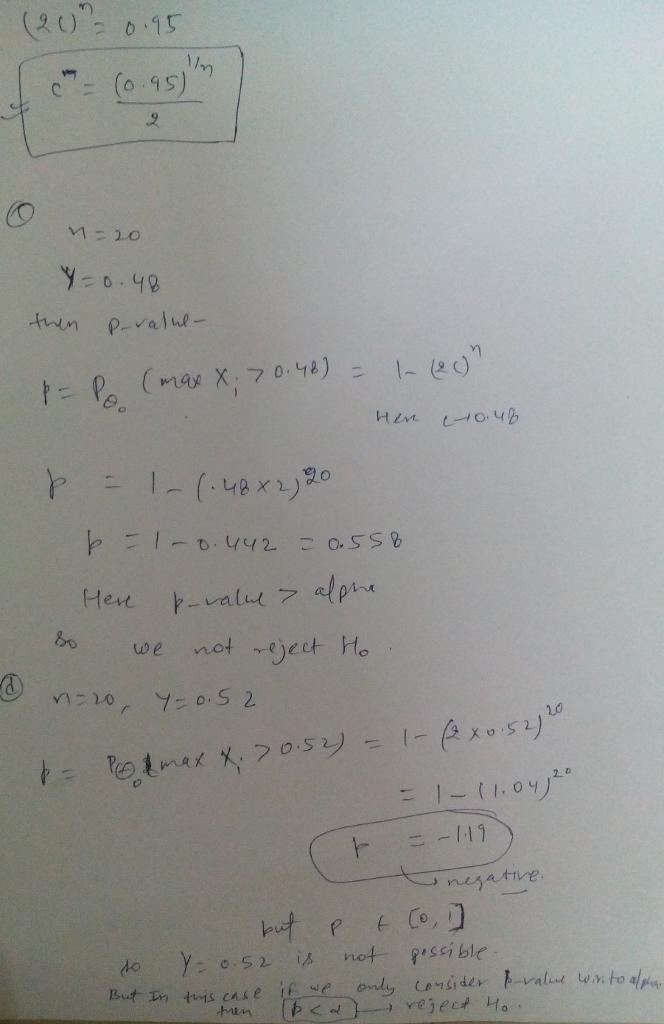 (2c)ⁿ = 0.95
cⁿ = (0.95)^{1/n} / 2
n = 20
Y = 0.48
then p-value -
p = P_{θ₀} (max X_i > 0.48) = 1 - (2c)ⁿ
Here c → 0.48
p = 1 - (.48 × 2)^{20}
p = 1 - 0.442 = 0.558
Here p-value > alpha
so we not reject H₀.
(d) n = 20, Y = 0.52
p = P_{θ₀} (max X_i > 0.52) = 1 - (2 × 0.52)^{20}
= 1 - (1.04)^{20}
p = -1.19
negative.
but p ∈ [0, 1]
so Y = 0.52 is not possible.
But In this case if we only consider p-value w.r.to alpha
then p < α → reject H₀.